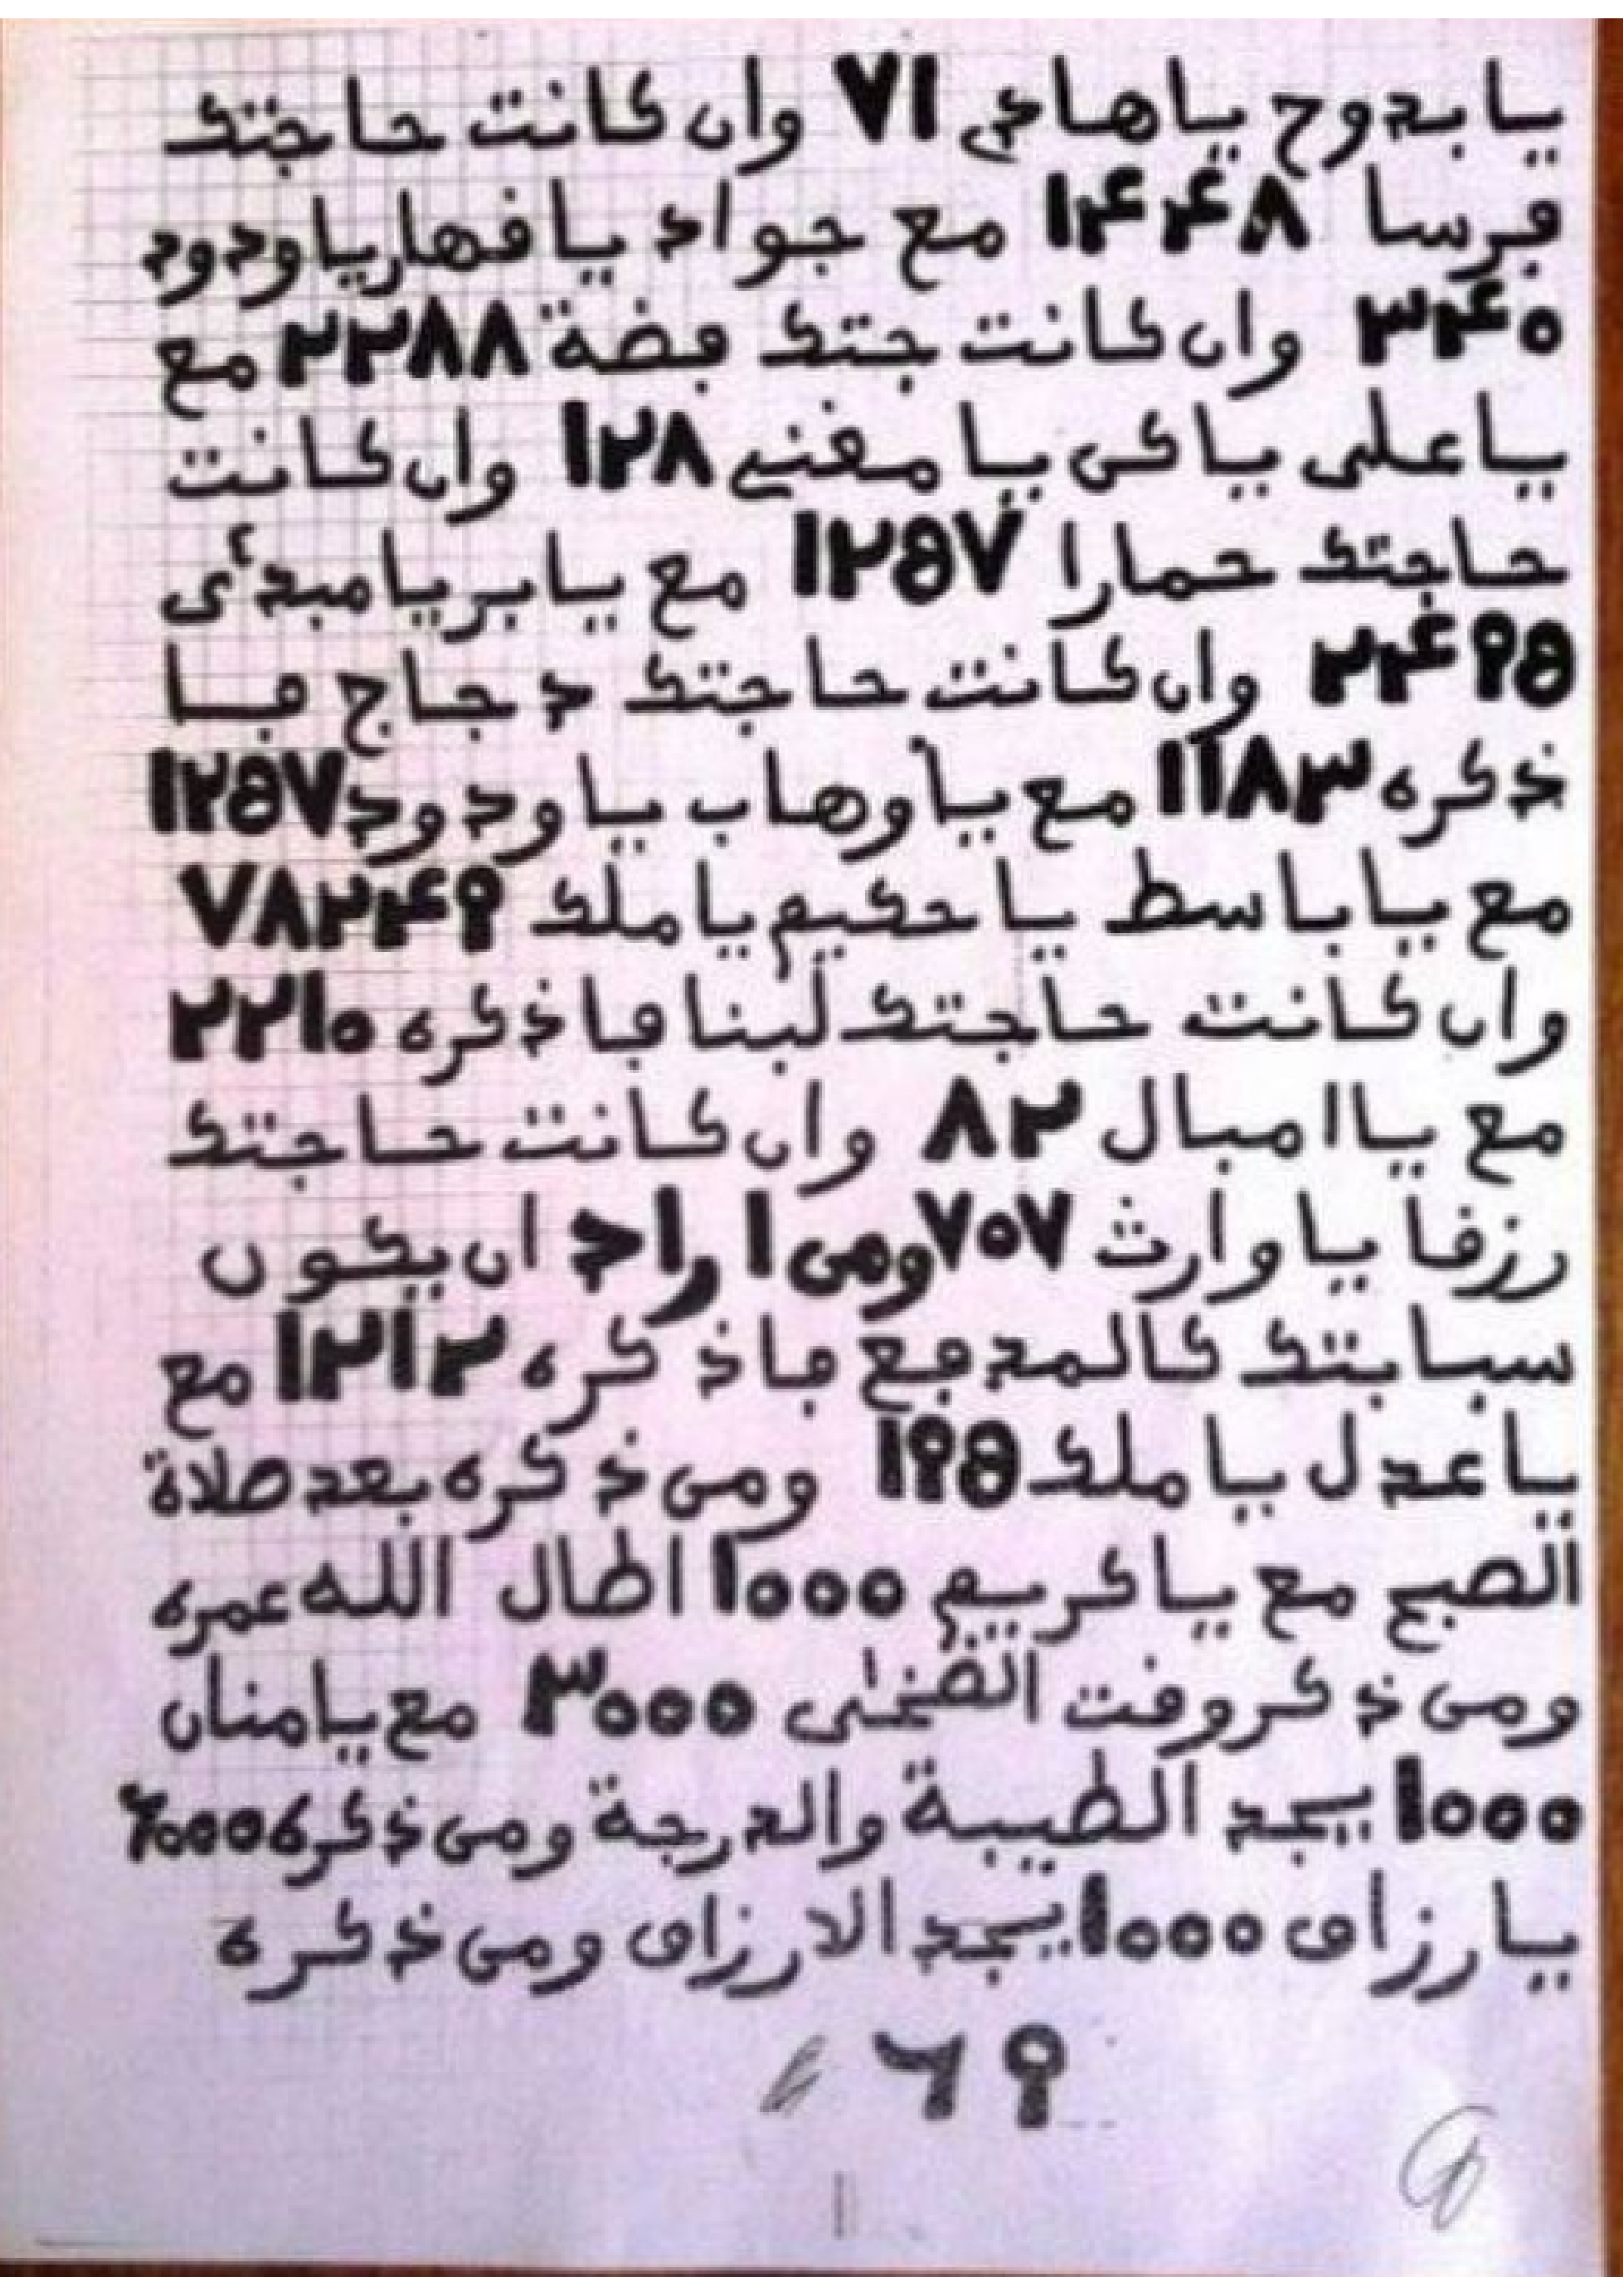 يا بدوح يا هادى ٧١ وان كانت حاجتك
فرسا ١۴۴٨ مع جواد يا قهار يا ودود
٣۴٠ وان كانت جتك فضة ٢٢٨٨ مع
يا على يا كى يا مغنى ١٢٨ وان كانت
حاجتك حمارا ١٢٥٧ مع يا بر يا مبدئ
٢۴٩٥ وان كانت حاجتك دجاج فا
ذكره ١١٨٣ مع يا وهاب يا ودود ١٢٥٧
مع يا باسط يا حكيم يا ملك ٧٨٢۴٩
وان كانت حاجتك لبنا فاذكره ٢٢١٠
مع يا امبال ٨٢ وان كانت حاجتك
رزقا يا وارث ٧٠٧ ومن اراد ان يكون
سبابتك كالمدفع فاذكره ١٢١٢ مع
يا عدل يا ملك ١٩٥ ومن ذكره بعد صلاة
الصبح مع يا كريم ١٠٠٠ اطال الله عمره
ومن ذكر وقت الضحى ٣٠٠٠ مع يا منان
١٠٠٠ يجد الطيبة والدرجة ومن ذكره ٦٠٠٠
يا رزاق ١٠٠٠ يجد الارزاق ومن ذكره
٦٩